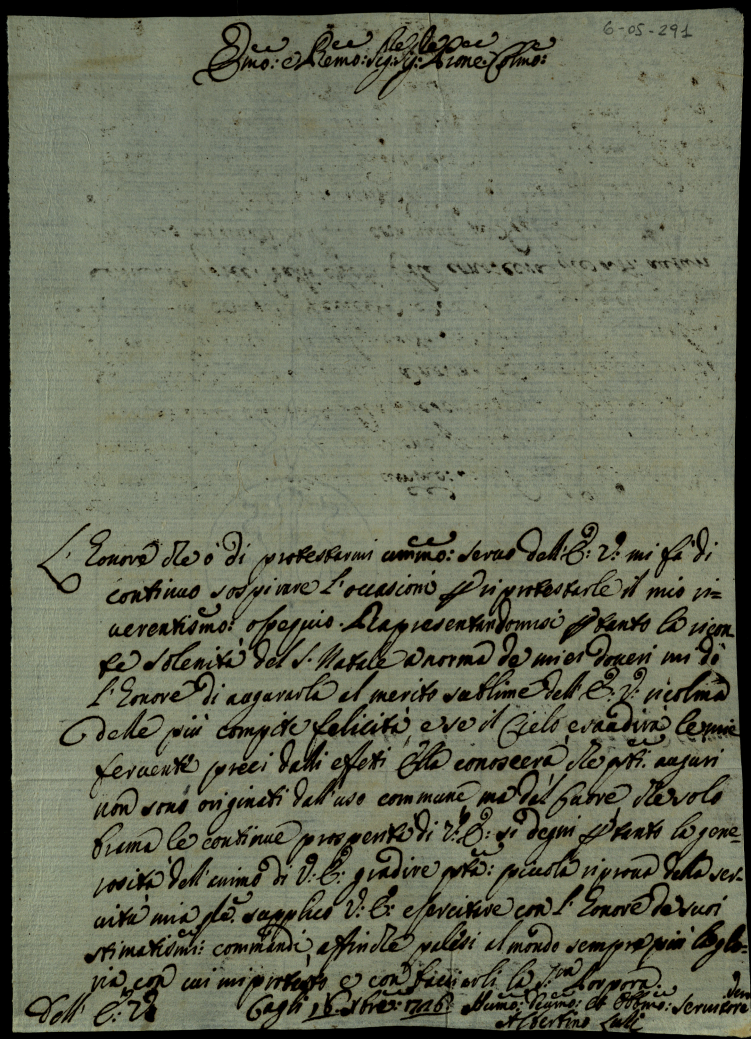 6-05-291
Emo: e Remo: Sig: Sig: Prone Colmo:
L'honore che ò di protestarmi ummo: seruo dell'E: V: mi fà di
continuo sospirare l'occasioni p riprotestarle il mio ri=
uerentismo: ossequio. Rapresentandomisi p tanto la ricor-
te solenità del S. Natale à norma de miei doueri mi dò
l'honore di augurarla al merito sublime dell'E: V: ricolma
delle più compite felicità, e se il Cielo esaudirà le mie
feruenti preci dalli effetti Ella conoscerà che psti: auguri
non sono originati dall'uso commune mà dal Cuore che solo
brama le continue prosperità di V: E: si degni p tanto la gene-
rosità dell'animo di V: E: gradire psta: piccola riproua della ser-
uitù mia che supplico V: E: esercitare con l'honore de suoi
stimatismi: commandi, affinche palesi al mondo sempre più la glo-
ria, con cui mi protesto e con faciarli la S: Porpora:
Dell' E: V: Cagli 16 Xbre: 1716 Ummo: Deumo: et Obbmo: Seruitore
Albertino Lulli